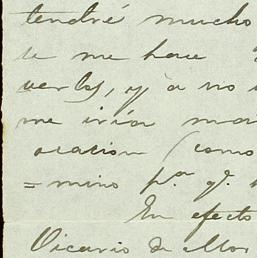 tendré mucho
te me hace
verlos, y a no
me iría
oración (como
=mino pª. qᵉ.
En efecto
Vicario de